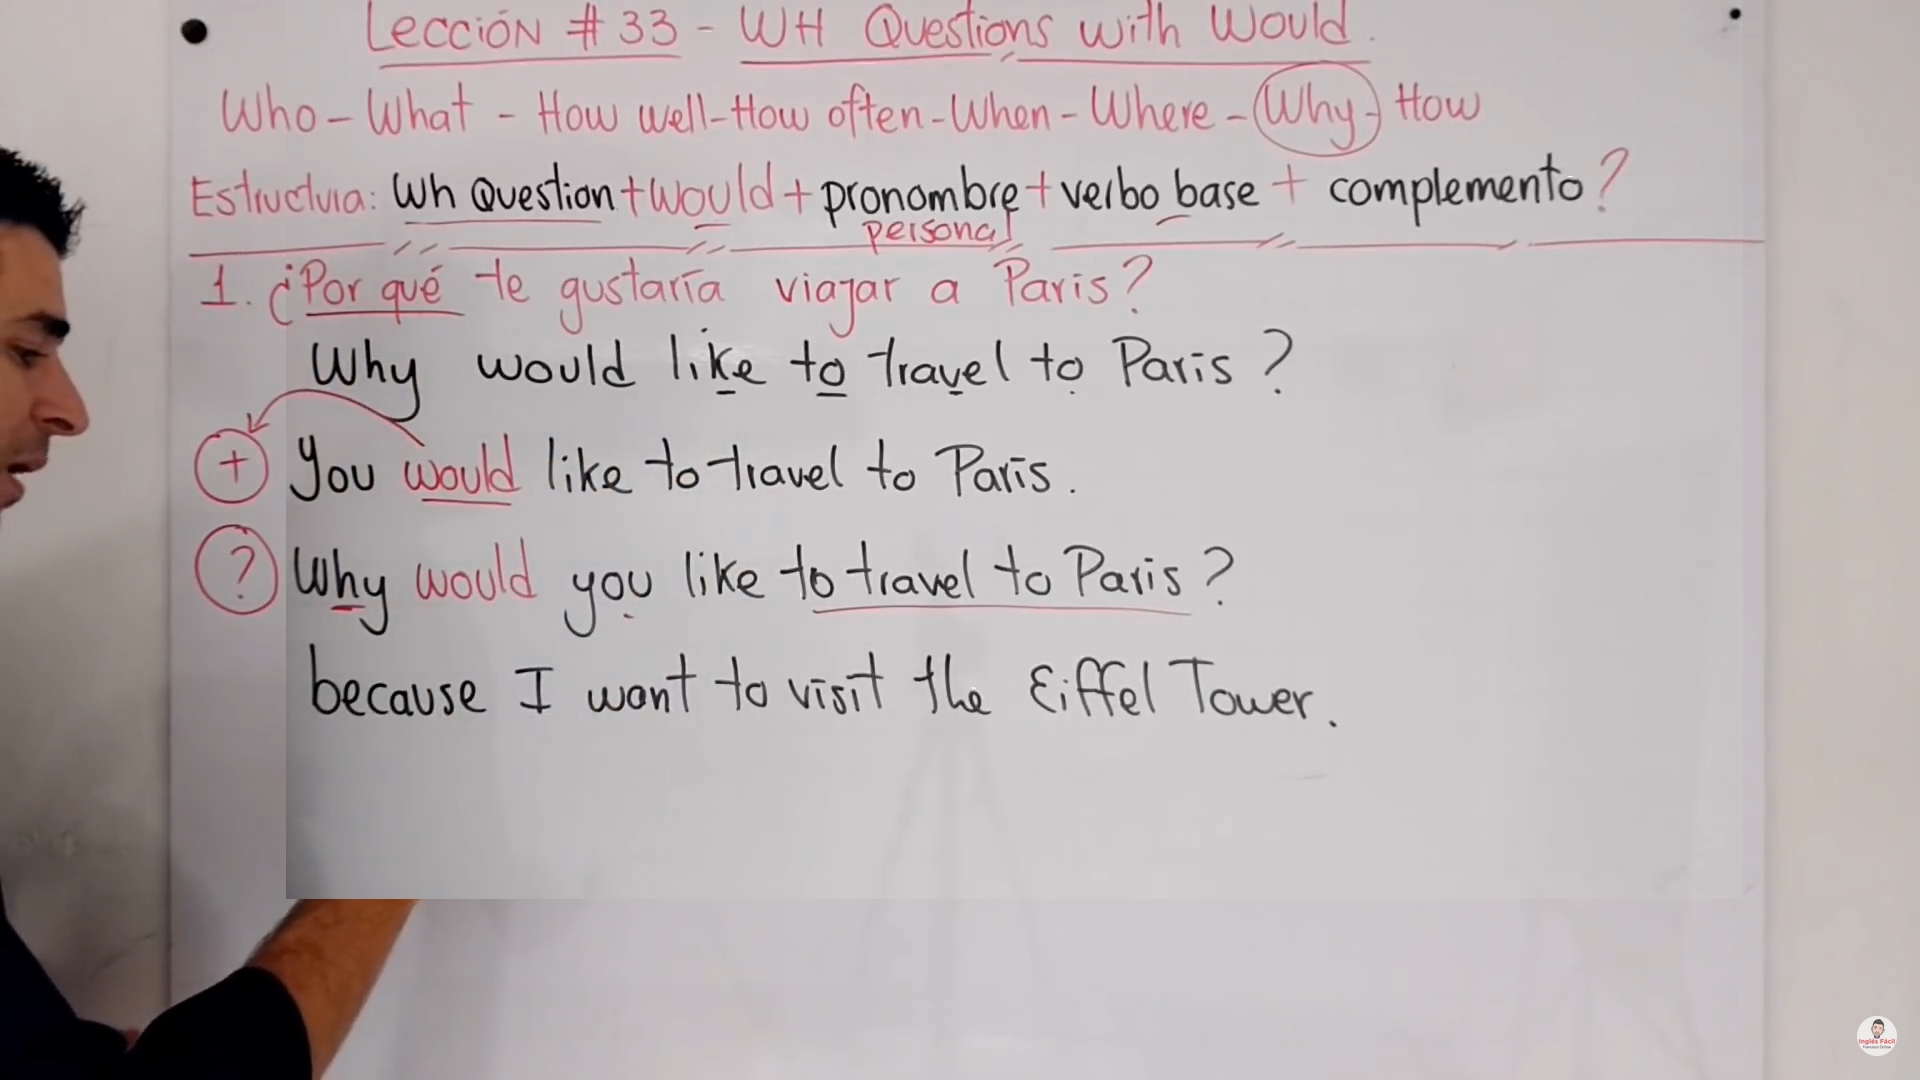 Lección # 33 - WH Questions with Would.
Who - What - How well - How often - When - Where - Why - How
Estructura: Wh Question + would + pronombre + verbo base + complemento?
personal
1. ¿Por qué te gustaría viajar a Paris?
Why would like to travel to Paris?
+ You would like to travel to Paris.
? Why would you like to travel to Paris?
because I want to visit the Eiffel Tower.
Inglés Fácil